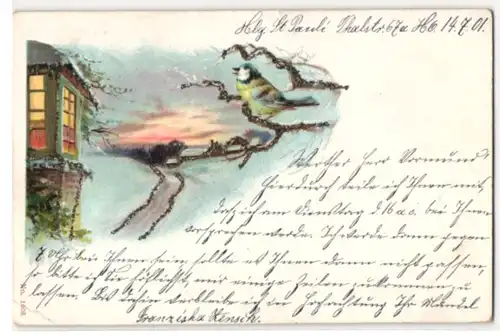 Hbg St Pauli Thalstr. 67a Hb. 14.7.01.
Werther Herr Vormund!
Hierdurch teile ich Ihnen mit,
daß ich am Dienstag d. 16 a.c. bei Ihnen
vorsprechen werde. Ich werde dann gegen
7 Uhr bei Ihnen sein sollte es Ihnen dann nicht passen,
so bitte ich Sie höflichst, mir einige Zeilen zukommen zu
lassen. Bis dahin verbleibe ich in Hochachtung Ihr Mündel
Franziska Hensch.
No.